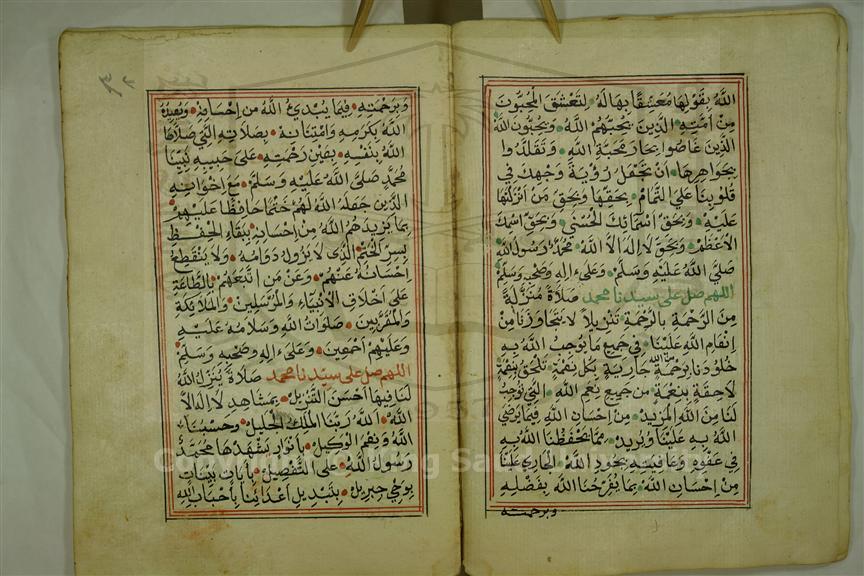 الله بقولها معشقا بها له لتعشق المحبون
من امته الذين يحبهم الله ويحبون الله
الذين غاصوا بحار محبة الله وتقلدوا
بجواهرها ان تجعل رؤية وجهك في
قلوبنا على التمام بحقها وبحق من انزلتها
عليه وبحق اسمائك الحسنى وبحق اسمك
الاعظم وبحق لا اله الا الله محمد رسول الله
صلى الله عليه وسلم وعلى اله وصحبه وسلم
اللهم صل على سيدنا محمد صلاة منزلة
من الرحمة بالرحمة تنزيلا لا يتجاوزنا من
انعام الله علينا في جميع ما يوجب الله به
خلودنا برحمة الله جارية بكل نعمة تلحق بنعمة
لاحقة بنعمة من جميع نعم الله التي توجب
لنا من الله المزيد من احسان الله فيما يرضي
الله به علينا ويريد مما يحفظنا الله به
في عفوه وعافيته بجود الله الجاري علينا
من احسان الله بما يفرحنا الله بفضله
وبرحمته
وبرحمته فيما يبدئ الله من احسانه ويعيده
الله بكرمه وامتنانه بصلاته التي صلاها
الله بنفسه بعين رحمته على حبيبه نبينا
محمد صلى الله عليه وسلم مع اخوانه
الذين جعله الله لهم ختما حافظا عليهم
بما يزيدهم الله من احسانه ببقاء الحفظ
بسر الختم الذي لا يزول دوامه ولا ينقطع
احسانه عنهم وعن من اتبعهم بالطاعة
على اخلاق الانبياء والمرسلين والملائكة
والمقربين صلوات الله وسلامه عليه
وعليهم اجمعين وعلى اله وصحبه وسلم
اللهم صل على سيدنا محمد صلاة ينزل الله
لنا فيها احسن التنزيل بمشاهد لا اله الا
الله الله ربنا الملك الجليل وحسبنا
الله ونعم الوكيل بانوار يشهدها محمد
رسول الله على التفصيل بايات بينات
بوحي جبريل بتبديل اعدائنا باحباب الله